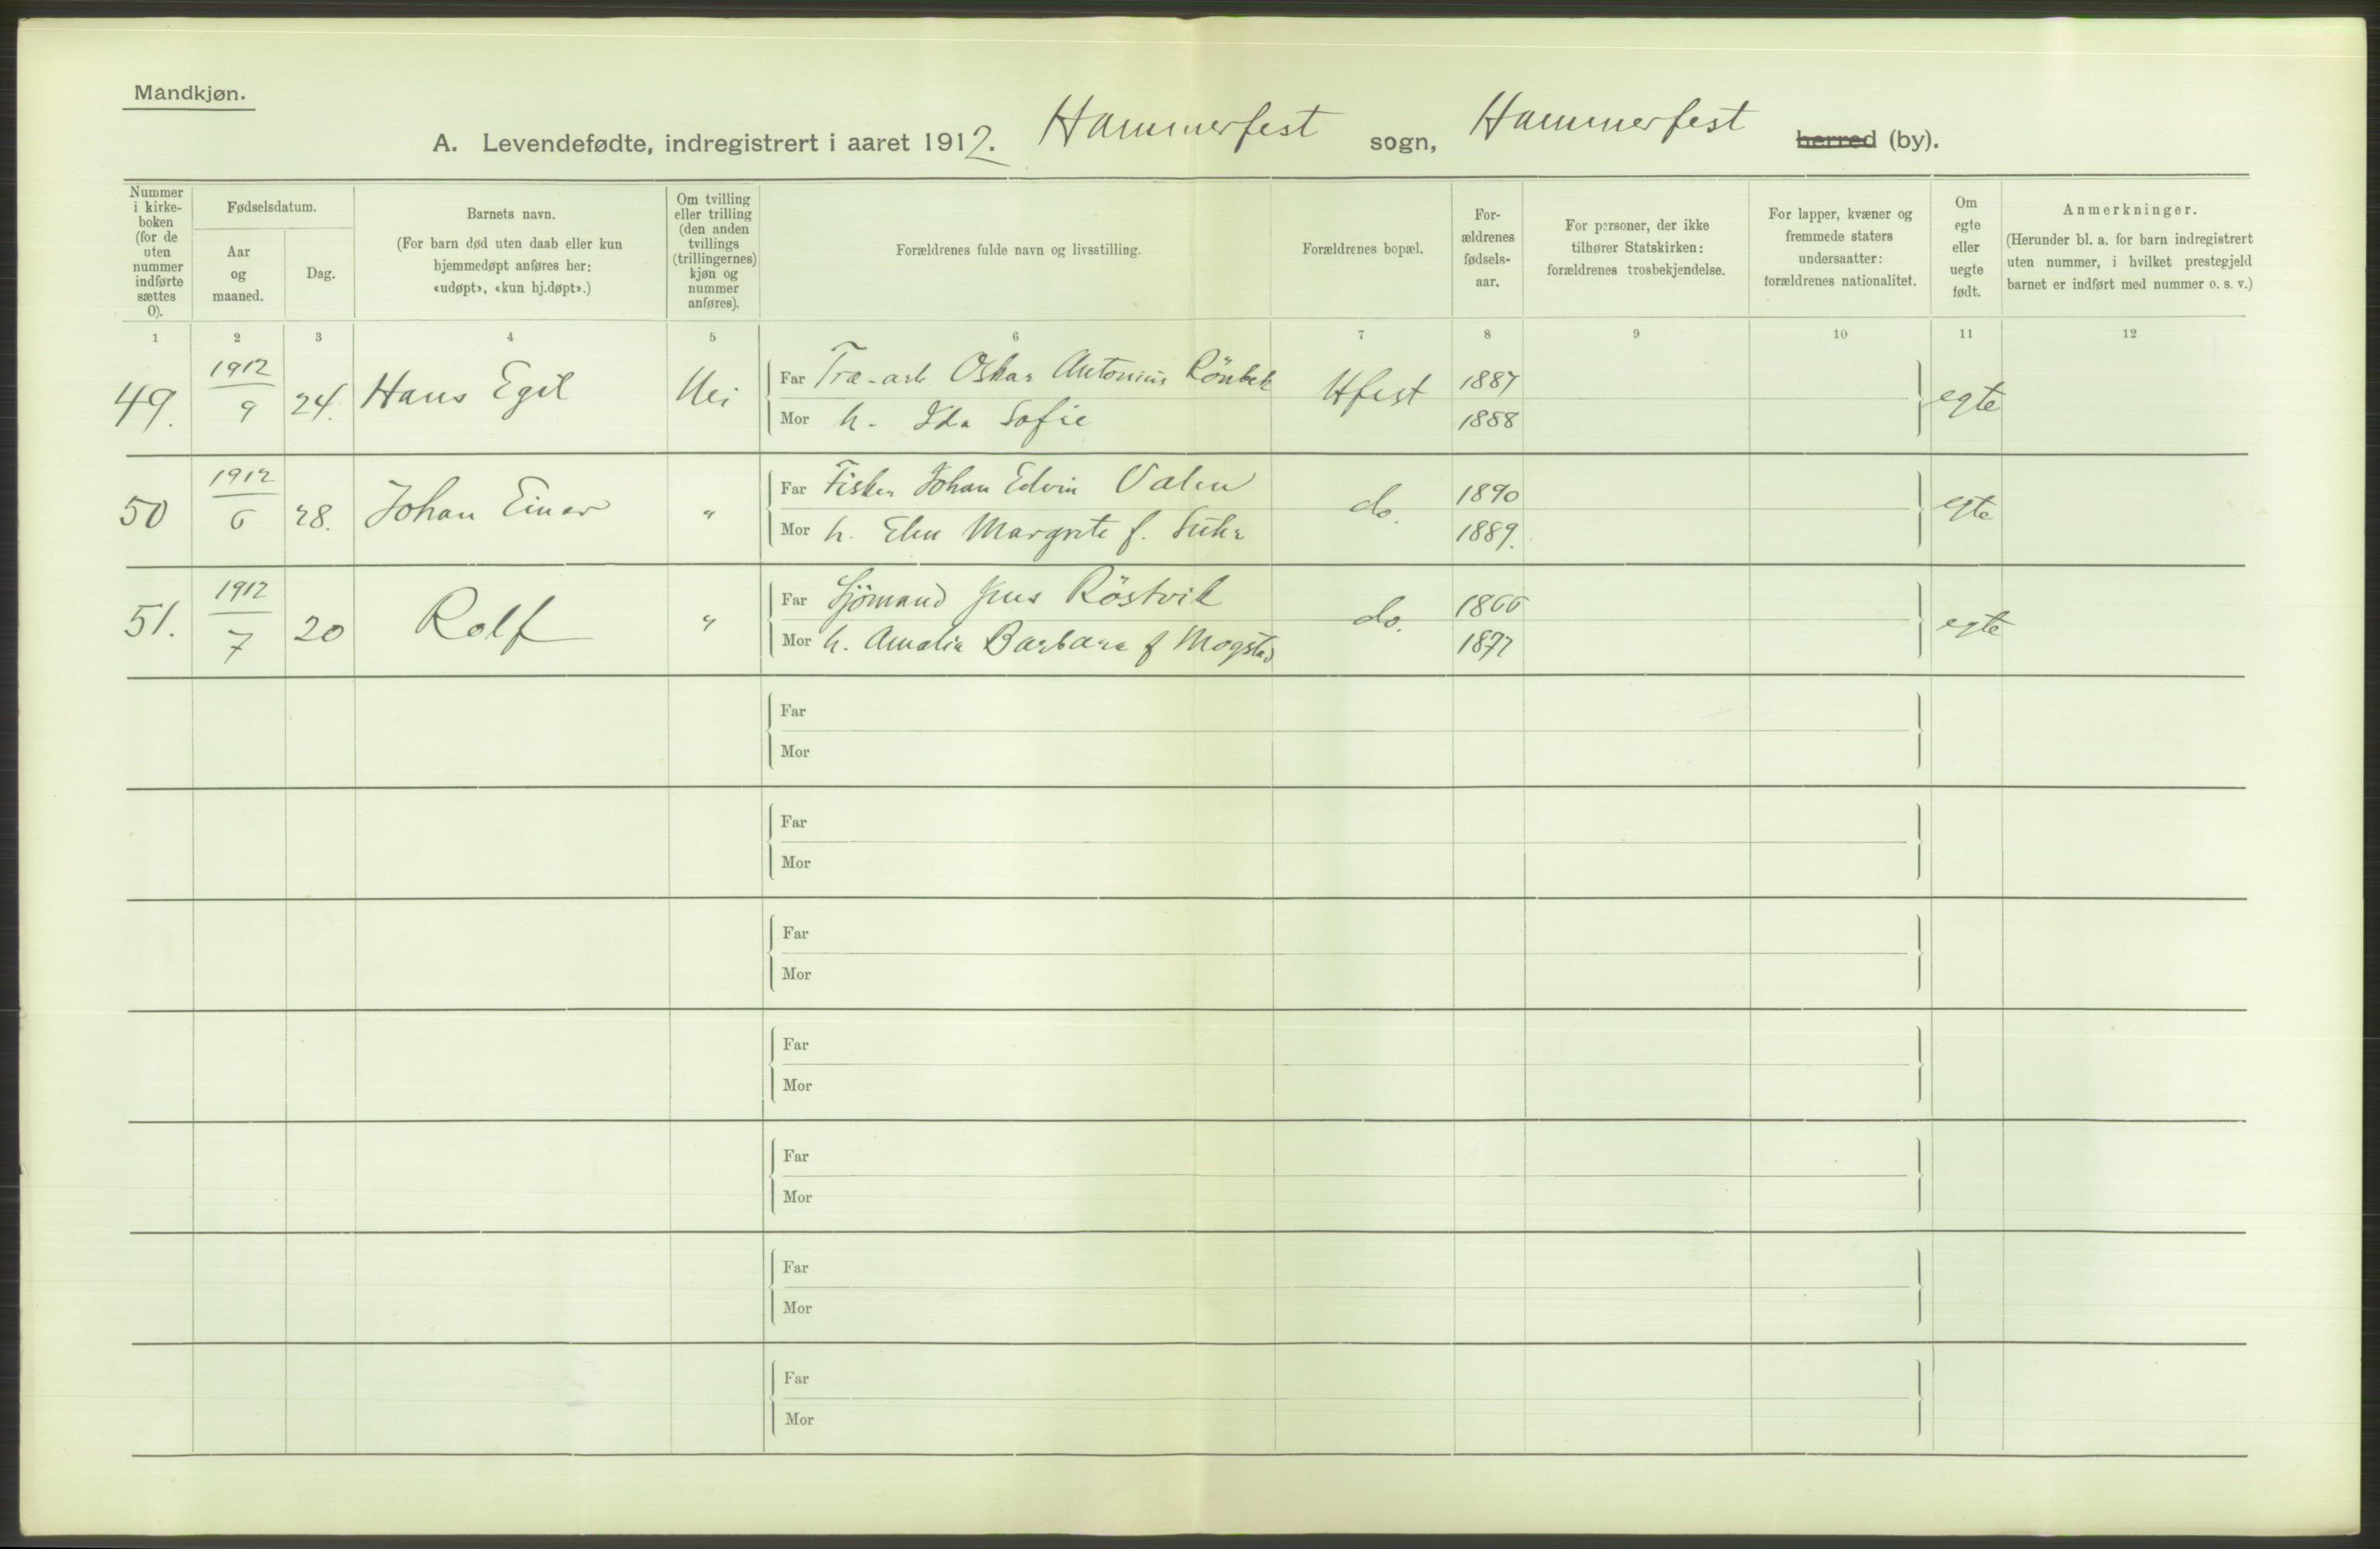 Mandkjøn.
A. Levendefødte, indregistrert i aaret 1912. Hammerfest sogn, Hammerfest herred (by).
Nummer i kirke-boken (for de uten nummer indførte sættes 0).
Fødselsdatum.
Aar og maaned.
Dag.
Barnets navn.
(For barn død uten daab eller kun hjemmedøpt anføres her: «udøpt», «kun hj.døpt».)
Om tvilling eller trilling (den anden tvillings (trillingernes) kjøn og nummer anføres).
Forældrenes fulde navn og livsstilling.
Forældrenes bopæl.
For-ældrenes fødsels-aar.
For personer, der ikke tilhører Statskirken: forældrenes trosbekjendelse.
For lapper, kvæner og fremmede staters undersaatter: forældrenes nationalitet.
Om egte eller uegte født.
Anmerkninger.
(Herunder bl. a. for barn indregistrert uten nummer, i hvilket prestegjeld barnet er indført med nummer o. s. v.)
1 2 3 4 5 6 7 8 9 10 11 12
49. 1912/9 24. Hans Egil Nei Far Træ-arb Oskar Antonius Rönbek Hfest 1887 egte
Mor h. Ida Sofie 1888
50 1912/6 28. Johan Einar " Far Fisker Johan Edvin Valen do. 1890 egte
Mor h. Elen Margrete f. 1889.
51. 1912/7 20 Rolf " Far Sjömand Jens Röstvik do. 1866 egte
Mor h. Amalia Barbara f Mogstad 1877
Far
Mor
Far
Mor
Far
Mor
Far
Mor
Far
Mor
Far
Mor
Far
Mor